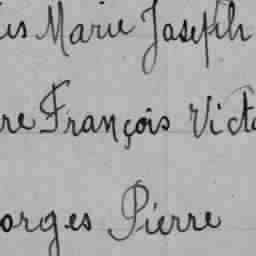 is Marie Joseph
re François Vict
orges Pierre